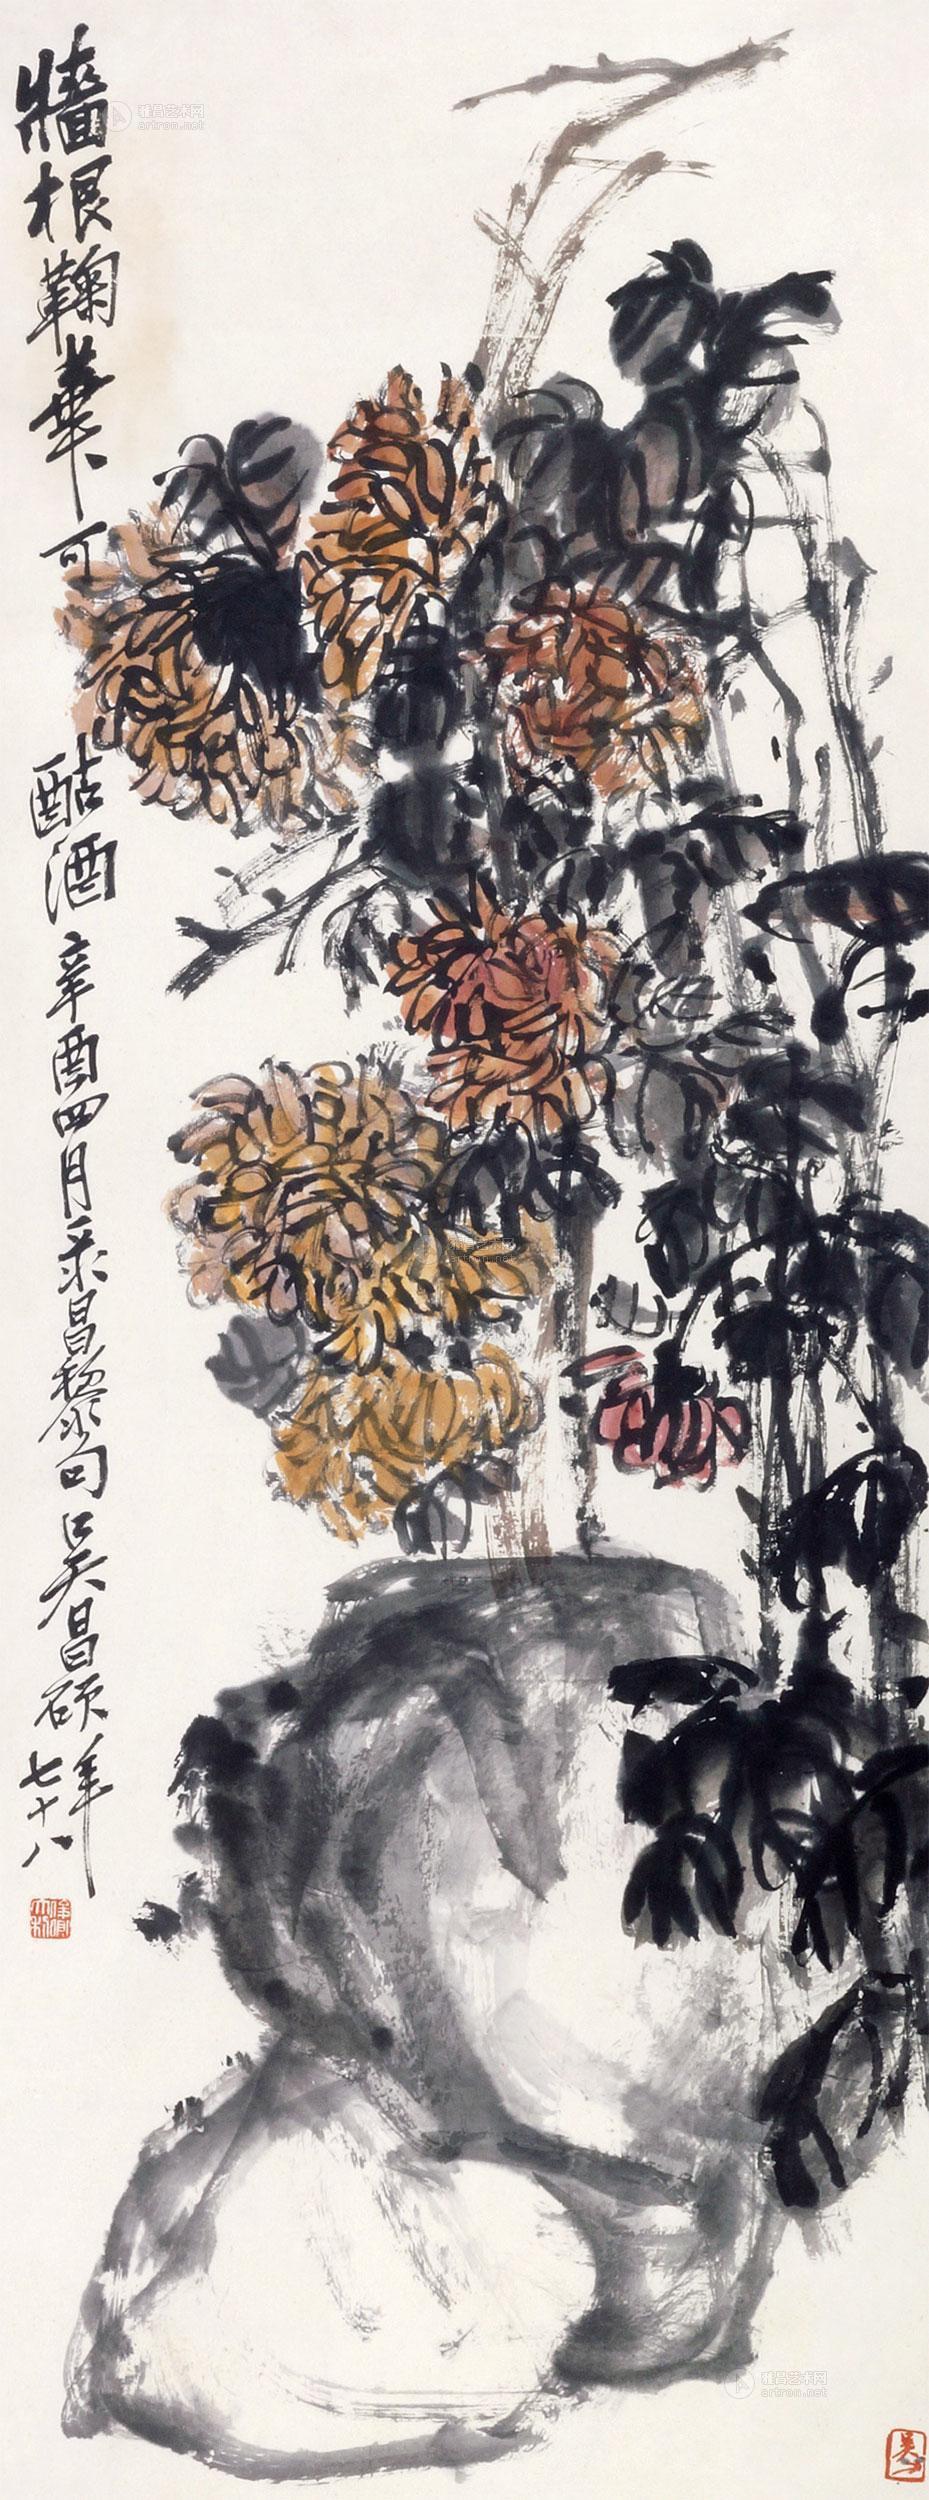 牆根鞠華可
酤酒辛酉四月采昌黎句吳昌碩年
七十八
雅昌艺术网
artron.net
雅昌艺术网
artron.net
雅昌艺术网
artron.net